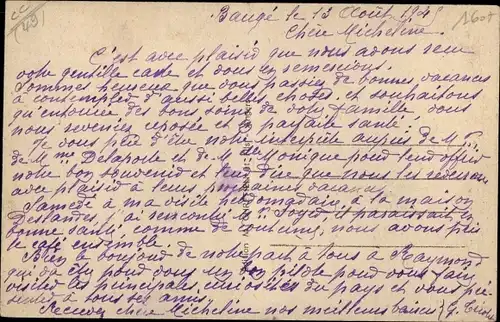 Baugé le 12 Août 194
Chère Micheline.
C'est avec plaisir que nous avons reçu
votre gentille carte et vous en remercions.
Sommes heureux que vous passiez de bonnes vacances
à contempler d'aussi belles choses et souhaitons
qu'entourée des bons soins de votre famille, vous
nous reveniez reposée et en parfaite santé.
Je vous prie d'être notre interprète auprès de Mr
de Mme Delaporte et de Monique pour leur offrir
notre bon souvenir et leur dire que nous les reverrons
avec plaisir à leurs prochaines vacances.
Samedi à ma visite hebdomadaire, à la maison
Deslandes, j'ai rencontré Mr il paraissait en
bonne santé, comme de coutume, nous avons pris
le café ensemble.
Bien le bonjour de notre part à tous à Raymond
qui a dû pour vous un pilote pour vous faire
visiter les principales curiosités du pays et vous
à tous ses amis.
Recevez chère Micheline nos meilleurs baisers G.